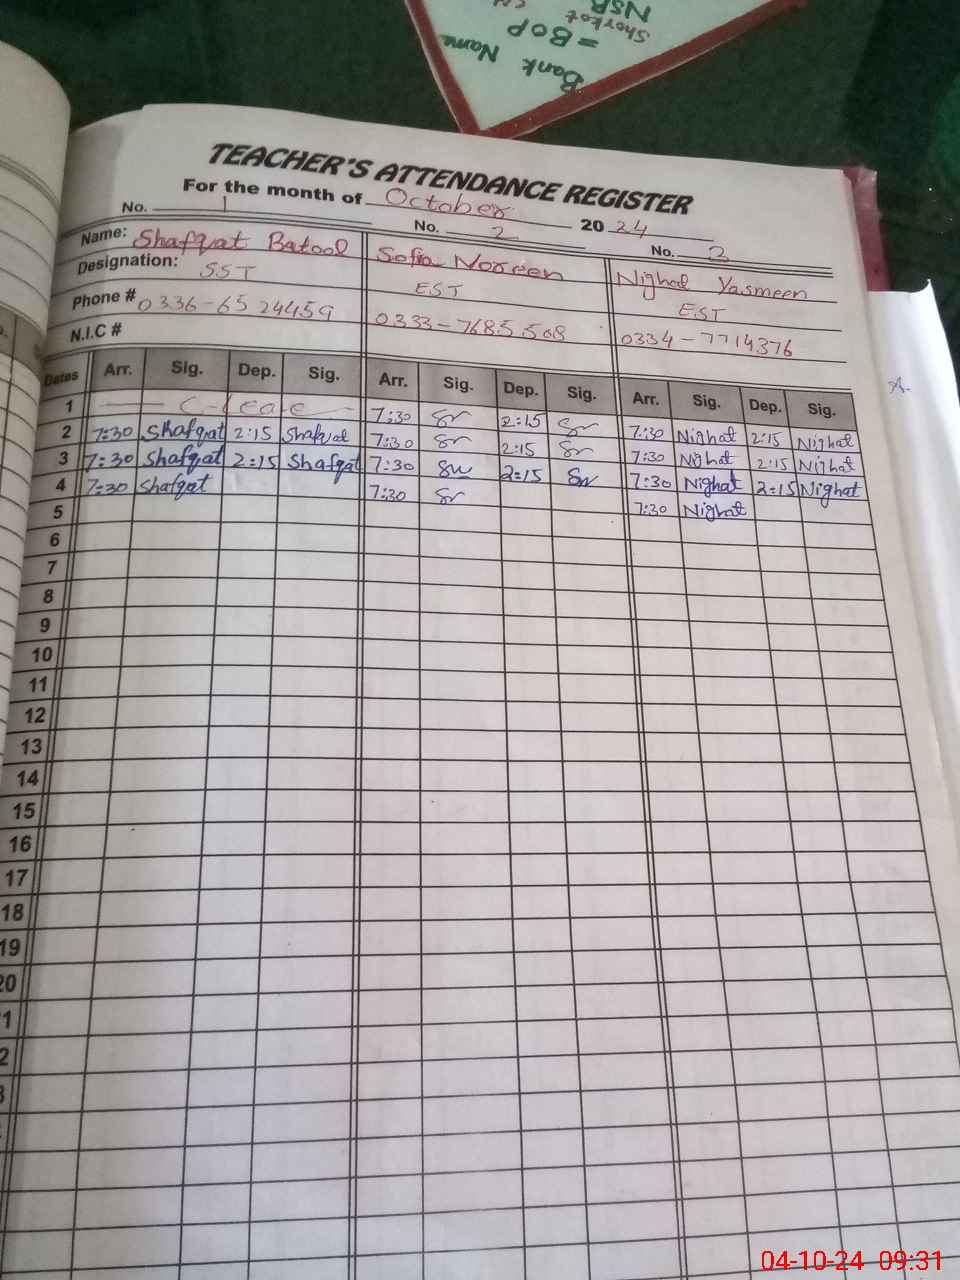 Bank Name
= BOP
Shorkot
NSB
TEACHER'S ATTENDANCE REGISTER
For the month of October 2024
No. 1 No. 2 No. 3
Name: Shafqat Batool Sofia Noreen Nighat Yasmeen
Designation: SST EST EST
Phone # 0336-6524459 0333-7685508 0334-7714376
N.I.C #
Dates Arr. Sig. Dep. Sig. Arr. Sig. Dep. Sig. Arr. Sig. Dep. Sig.
1 C-Leave 7:30 Sr 2:15 Sr 7:30 Nighat 2:15 Nighat
2 7:30 Shafqat 2:15 Shafqat 7:30 Sr 2:15 Sr 7:30 Nighat 2:15 Nighat
3 7:30 Shafqat 2:15 Shafqat 7:30 Sr 2:15 Sr 7:30 Nighat 2:15 Nighat
4 7:30 Shafqat 7:30 Sr 7:30 Nighat
5
6
7
8
9
10
11
12
13
14
15
16
17
18
19
20
04-10-24 09:31